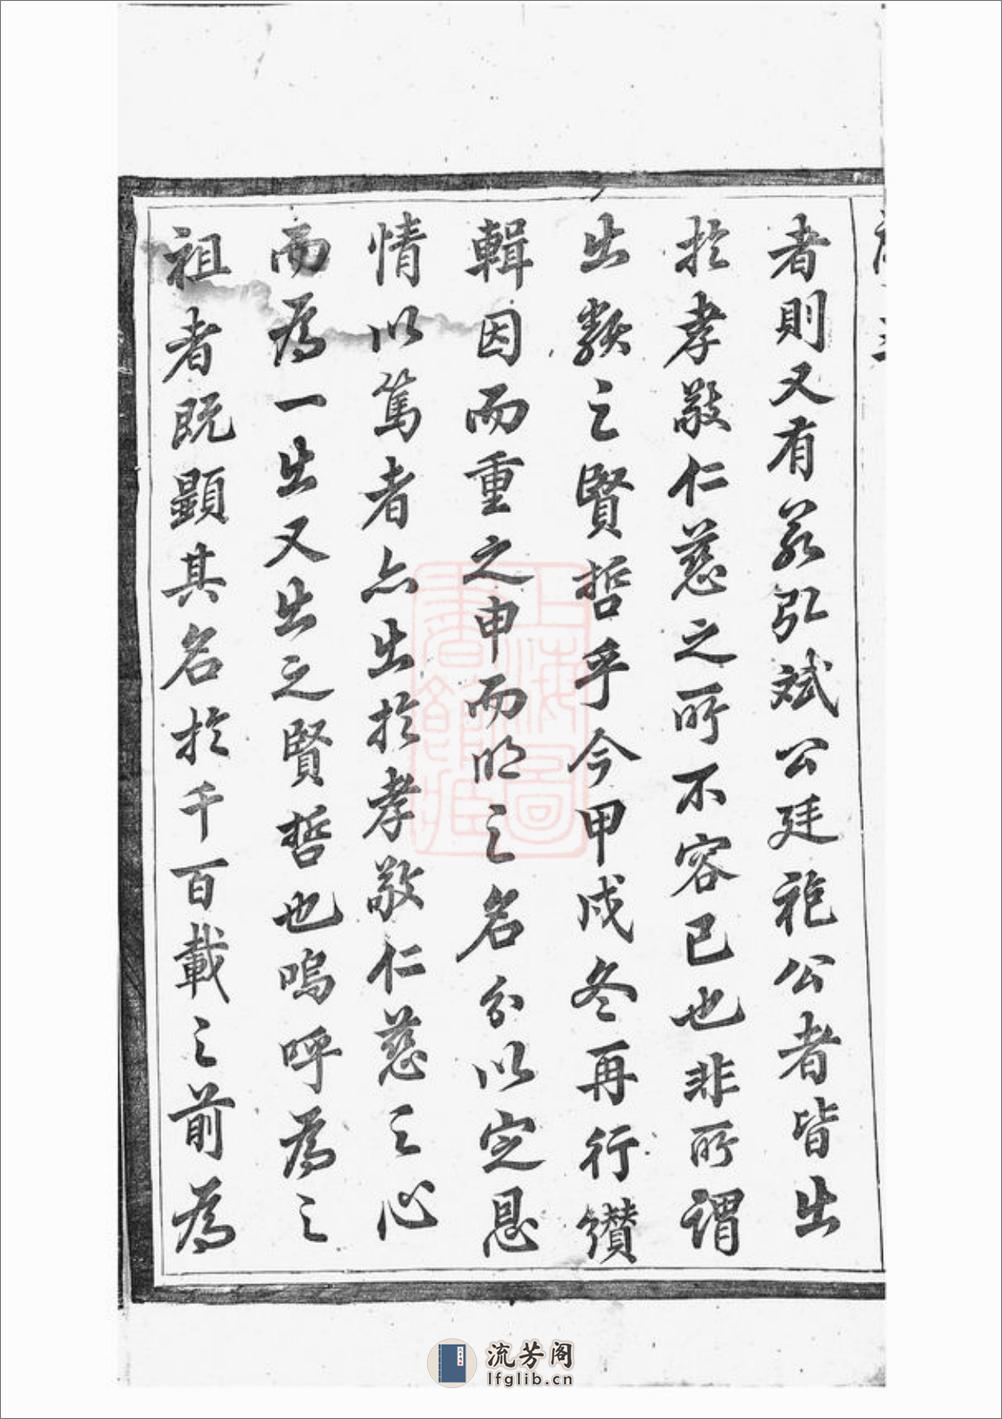 者則又有若弘斌公廷祂公者皆出
於孝敬仁慈之所不容已也非所謂
出類之賢哲乎今甲戌冬再行纘
輯因而重之申而明之名分以定恩
情以篤者亦出於孝敬仁慈之心
而為一出又出之賢哲也嗚呼為之
祖者既顯其名於千百載之前為
上海圖書館藏
流芳阁
lfglib.cn